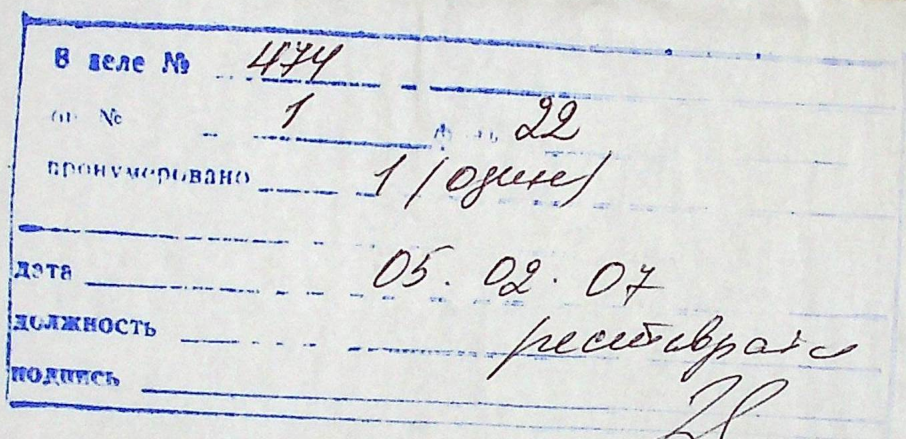 В деле № 474
оп № 1 22
пронумеровано 1 (один)
дата 05.02.07
должность
подпись